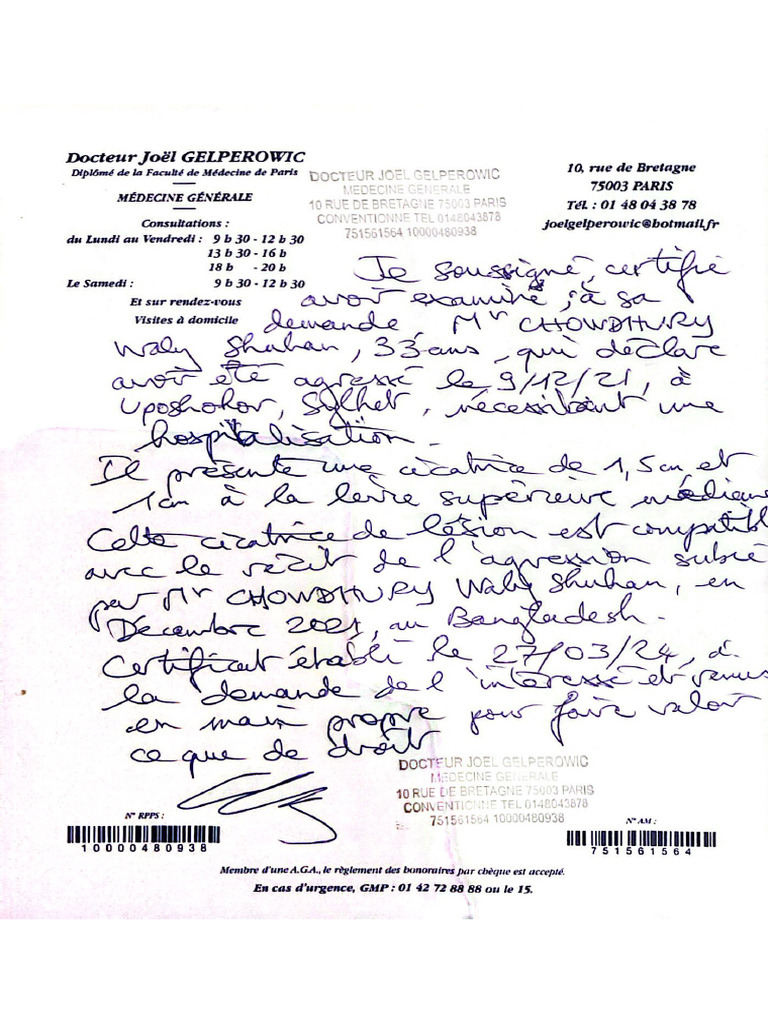 Docteur Joël GELPEROWIC
Diplômé de la Faculté de Médecine de Paris
MÉDECINE GÉNÉRALE
Consultations :
du Lundi au Vendredi : 9 h 30 - 12 h 30
13 h 30 - 16 h
18 h - 20 h
Le Samedi : 9 h 30 - 12 h 30
Et sur rendez-vous
Visites à domicile
DOCTEUR JOEL GELPEROWIC
MEDECINE GENERALE
10 RUE DE BRETAGNE 75003 PARIS
CONVENTIONNE TEL 0148043878
751561564 10000480938
10, rue de Bretagne
75003 PARIS
Tél. : 01 48 04 38 78
joelgelperowic@hotmail.fr
Je soussigné, certifie
avoir examiné, à sa
demande, Mr CHOWDHURY
Waly Shuhan, 33 ans, qui déclare
avoir été agressé le 9/12/21, à
Uposhohor, Sylhet, nécessitant une
hospitalisation.
Il présente une cicatrice de 1,5 cm et
1 cm à la lèvre supérieure médiane
Cette cicatrice de lésion est compatibl
avec le récit de l'agression subie
par Mr CHOWDHURY Waly Shuhan, en
Décembre 2021, au Bangladesh.
Certificat établi le 27/03/24, à
la demande de l'intéressé et remis
en main propre pour faire valoir
ce que de droit
DOCTEUR JOEL GELPEROWIC
MEDECINE GENERALE
10 RUE DE BRETAGNE 75003 PARIS
CONVENTIONNE TEL 0148043878
751561564 10000480938
N° RPPS :
10000480938
N° AM :
751561564
Membre d'une A.G.A., le règlement des honoraires par chèque est accepté.
En cas d'urgence, GMP : 01 42 72 88 88 ou le 15.